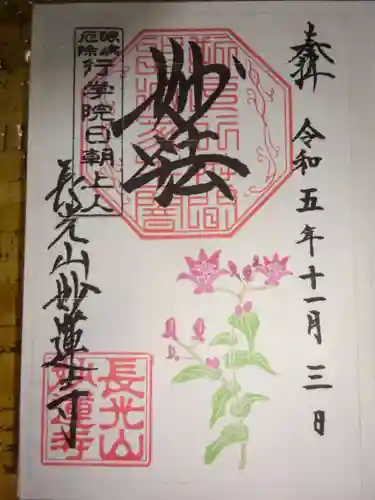 奉拝
令和五年十一月三日
妙法
眼病
厄除
行学院日朝上人
長光山妙蓮寺
長光山
妙蓮寺